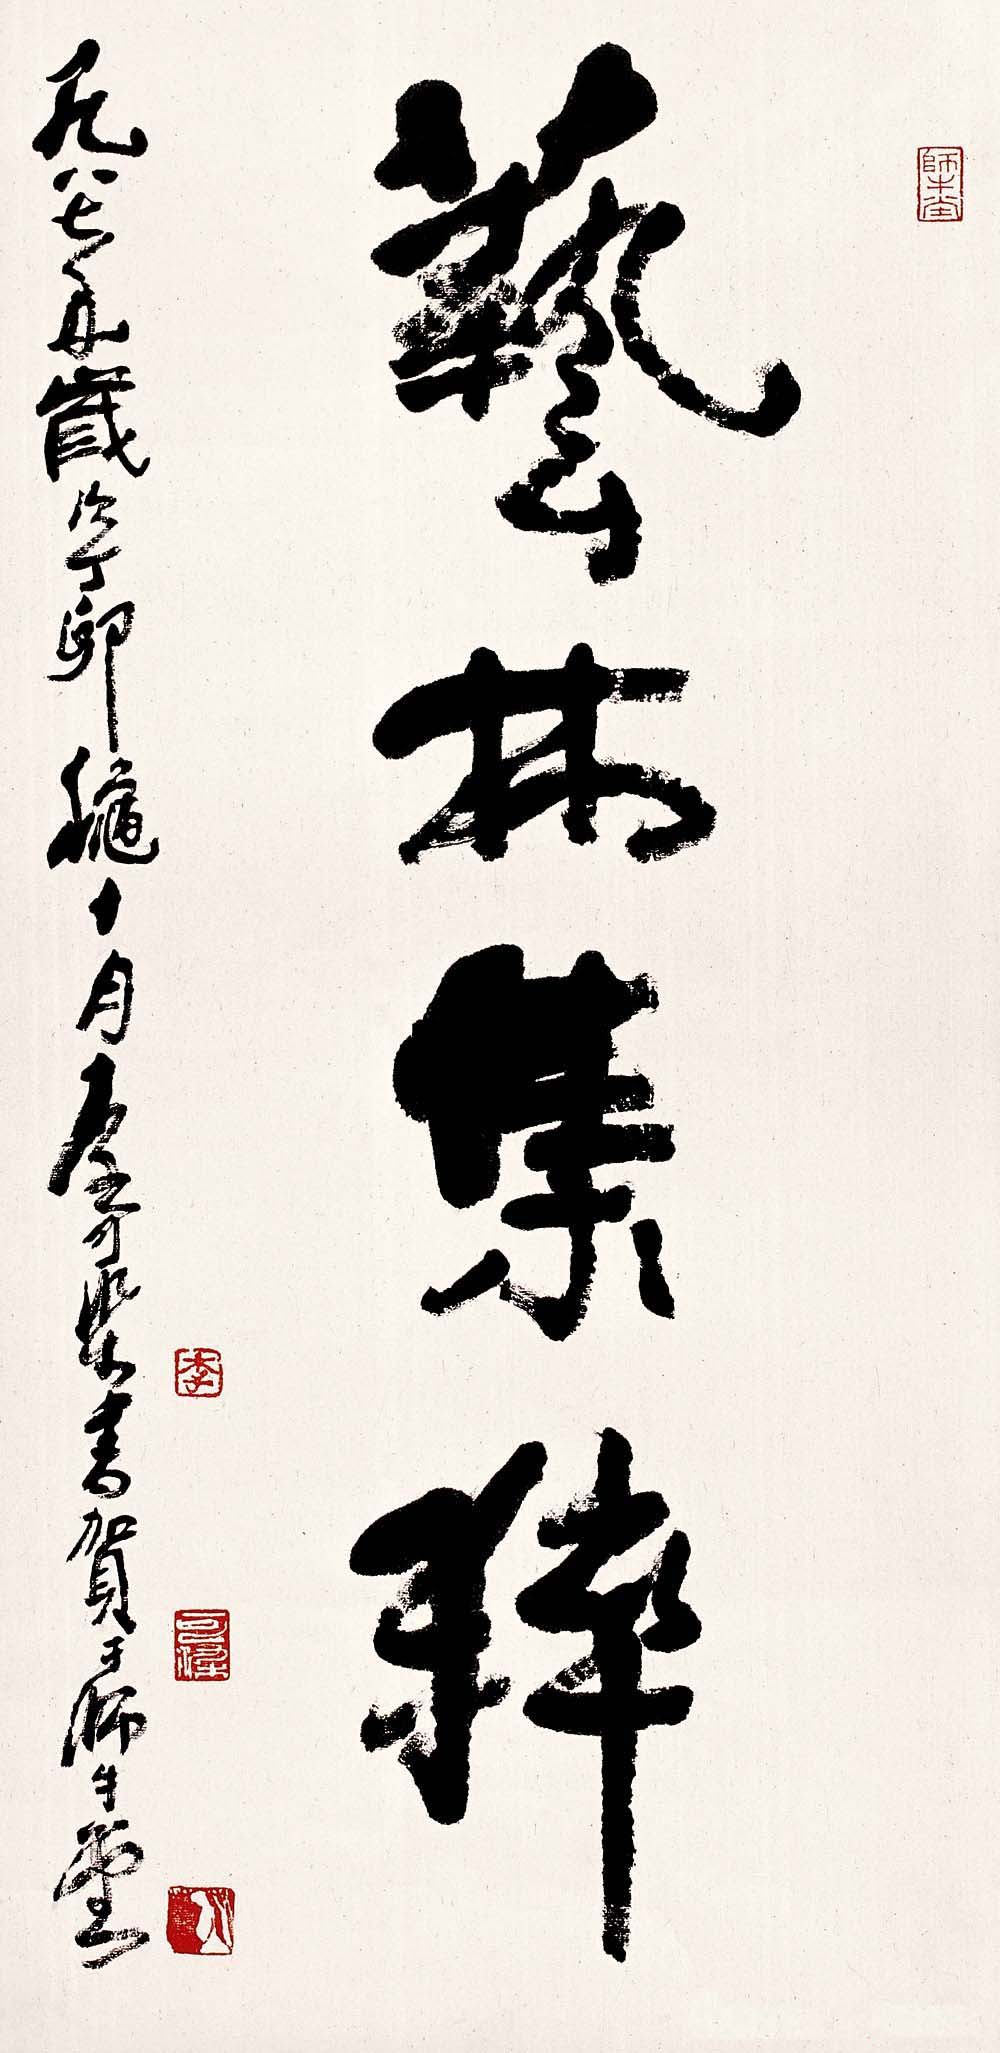 師牛堂
藝林集粹
一九八七年歲次丁卯龝十月屋可染書賀于師牛堂
李
可染